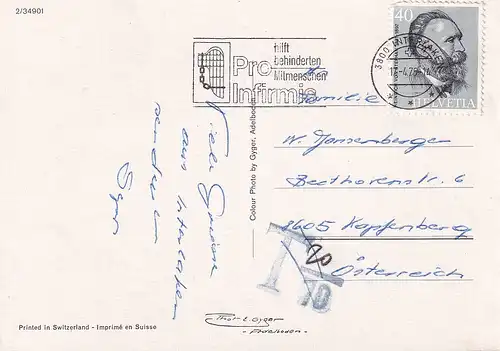 2/34901
40
HELVETIA
3800 INTERLAKEN
hilft
behinderten
Mitmenschen
Pro
Infirmis
Familie
W. Jonsenberger
Beethovenstr. 6
8605 Kapfenberg
Österreich
T
Viele Grüsse
aus Interlaken
senden
Colour Photo by Gyger, Adelboden
Thor E. Gyger
- Adelboden -
Printed in Switzerland - Imprimé en Suisse